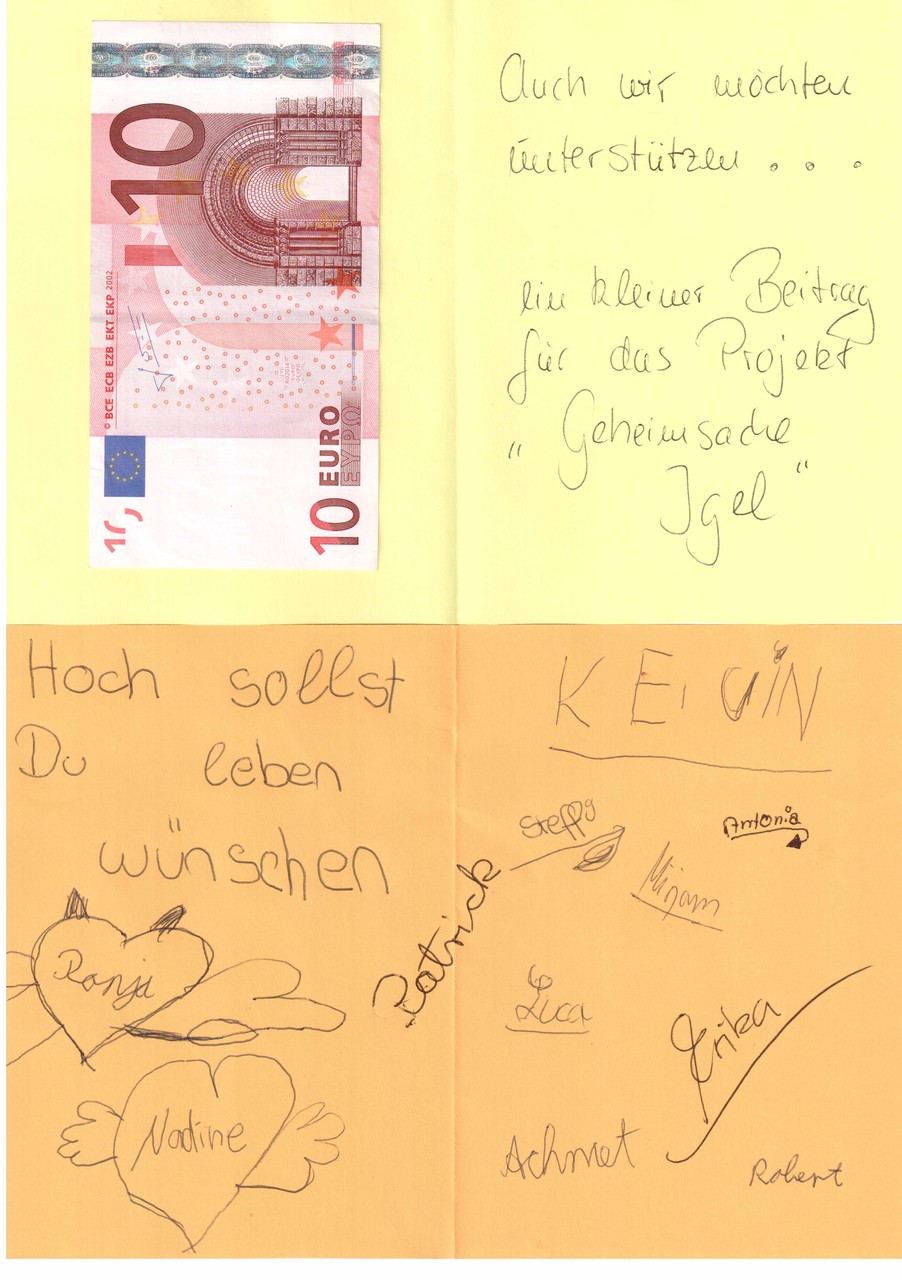 10
© BCE ECB EZB EKT EKP 2002
10 EURO
ΕΥΡΩ
Auch wir möchten
unterstützen . . .
ein kleiner Beitrag
für das Projekt
„Geheimsache
Igel“
Hoch sollst
Du leben
wünschen
Ranja
Nadine
Patrick
KEVIN
Steffy
Antonia
Mirjam
Luca
Erika
Achmet
Robert